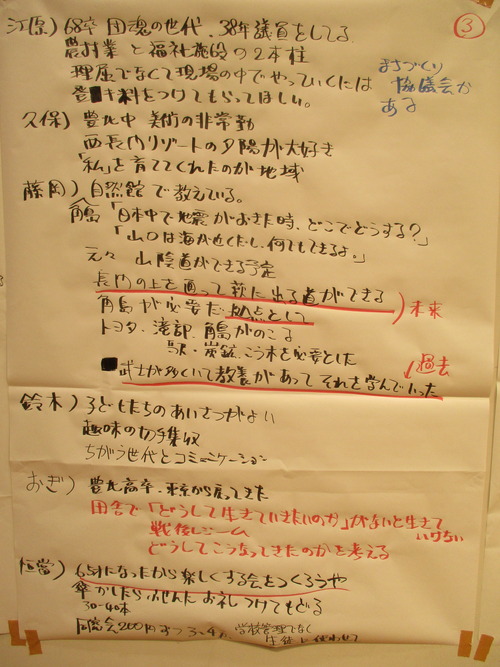 ③
江原) 68才 団魂の世代、38年議員をしてる
農村業と福祉施設の2本柱
理屈でなくて現場の中でやっていくには
肥料をつけてもらってほしい。
まちづくり
協議会が
ある
久保) 豊北中 美術の非常勤
西長門リゾートの夕陽が大好き
「私」を育ててくれたのが地域
藤岡) 自然館で教えている。
角島「日本中で地震がおきた時、どこでどうする?」
「山口は海が近くだし、何でもできるよ。」
元々 山陰道ができる予定
長門の上を通って萩に出る道ができる
角島が必要だ 拠点として
未来
トヨタ、滝部、角島がのこる
駅・炭鉱、こう木を必要とした
過去
武士が多くいて教養があってそれを学んでいった
鈴木) 子どもたちのあいさつがよい
趣味の切手集収
ちがう世代とコミュニケーション
おぎ) 豊北高卒、東京から戻ってきた
田舎で「どうして生きていきたいのか」がないと生きていけない
戦後レジーム
どうしてこうなってきたのかを考える
恒當) 65才になったから楽しくする会をつくろうや
傘かしたら ふせんにお礼つけてもどる
30-40本
同窓会200円ずつ 3~4
学校管理でなく
生徒に使わせて